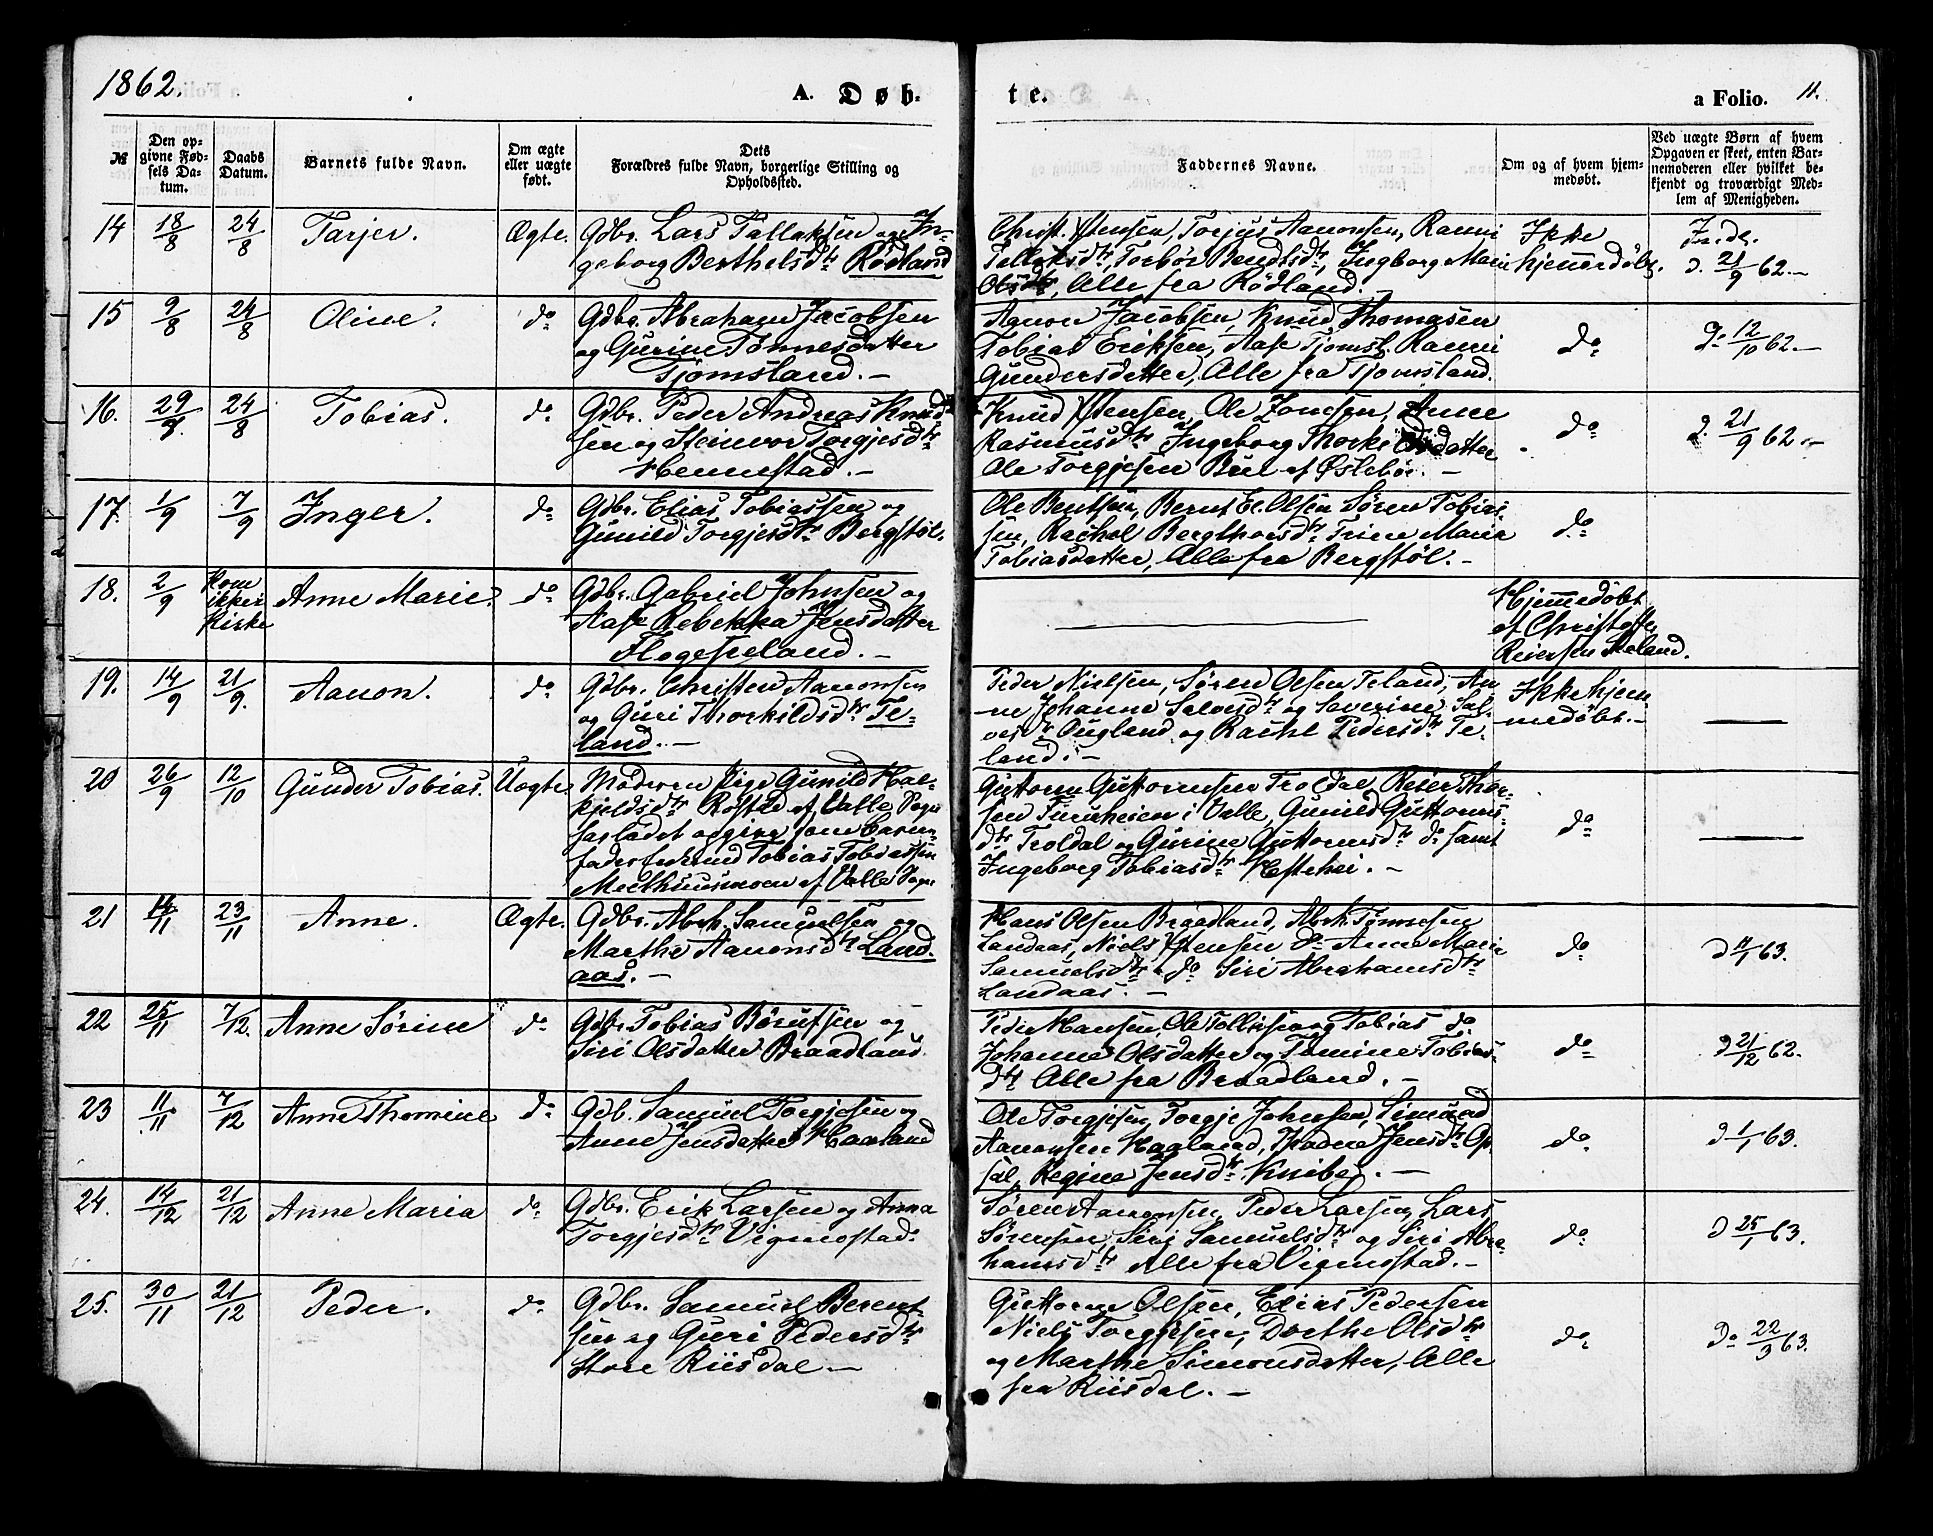 1862.
A. Døb-
te.
a Folio. 11.
№
Den op-
givne Fød-
sels Da-
tum.
Daabs
Datum.
Barnets fulde Navn.
Om ægte
eller uægte
født.
Dets
Forældres fulde Navn, borgerlige Stilling og
Opholdssted.
Faddernes Navne.
Om og af hvem hjem-
medøbt.
Ved uægte Børn af hvem
Opgaven er skeet, enten Bar-
nemoderen eller hvilket be-
kjendt og troværdigt Med-
lem af Menigheden.
14 18/8 24/8 Tarjer. Ægte.
Gdbr. Lars Tallaksen og In-
geborg Berthelsdtr Rødland
Christ. Jensen, Torjus Aanonsen, Ranni
Tallaksdtr, Torbør Bendtsdtr, Ingborg Marie
Olsdtr, Alle fra Rødland.
Ikke
hjemmedøbt.
D. 21/9 62.-
15 9/8 24/8 Oline. do
Gdbr. Abraham Jacobsen
og Gurine Tønnesdatter
Tjomsland.-
Aanon Jacobsen, Knud Thomasen
Tobias Eriksen, Aase Tjomsl. Ranni
Gundersdatter, Alle fra Tjomsland.
do
D. 12/10 62.-
16. 29/7 24/8 Tobias. do
Gdbr. Peder Andreas Knud-
sen og Steinvor Torgjesdtr
Hennestad.-
Knud Jensen, Ole Jonesen, Anne
Rasmusdtr Ingeborg Thorkildsdatter
Ole Torgjesen Bue af Øslebøe.-
do
D. 21/9 62.-
17. 1/9 7/9 Inger. do
Gdbr. Elias Tobiassen og
Gunild Torgjesdtr Bergstøl.
Ole Bentsen, Bernt El. Olsen Søren Tobias-
sen, Rachel Bergthorsdtr Trine Marie
Tobiasdatter, Alle fra Bergstøl.-
do
18. 2/9 Kom
ikke i
Kirke Anne Marie. do
Gdbr. Gabriel Johnsen og
Aase Rebekka Jensdatter
Flogeseeland.-
Hjemmedøbt
af Christoffer
Reiersen Skeland.
19. 14/9 21/9. Aanon. do
Gdbr. Christen Aanonsen
og Guri Thorkildsdtr Te-
land.-
Peder Nielsen, Søren Olsen Teland, An-
ne Johanne Salvesdtr og Severine Sal-
vesdtr Ougland og Rachel Pedersdtr Te-
land.-
Ikke hjem-
medøbt.-
20 26/9 12/10 Gunder Tobias. Uægte
Moderen Pige Gunild Hal-
kjeldsdtr Røsstad af Valle Sogn
saglødet opgive som Barne-
fader ledmand Tobias Tobiassen
Meethuusmoen af Valle Sogn
Guttorm Guttormsen Troldal, Reier Thor-
sen Furuheien i Valle, Gunild Guttorms-
dtr Troldal og Gurine Guttormsdtr do samt
Ingeborg Tobiasdtr Hestehei.-
do
21 14/11 23/11 Anne. Ægte.
Gdbr. Abrh. Samuelsen og
Marthe Aanonsdtr Land-
aas.-
Hans Olsen Braadland, Abrh. Tønnesen
Landaas, Niels Jensen do Anne Marie
Samuelsdtr do Siri Abrahamsdtr
Landaas.-
do
D 11/1 63.
22 25/11 7/12. Anne Sørine do
Gdbr Tobias Børufsen og
Siri Olsdatter Braadland.
Peder Hansen, Ole Tollissen og Tobias do.
Johanne Olsdatter og Tomine Tobias-
dtr Alle fra Braadland.-
do
D 21/12 62.
23 11/11 7/12 Anne Thomine do
Gdb. Samuel Torgjesen og
Anne Jensdatter Haaland
Ole Torgjesen, Torgje Johnsen, Simund
Aanonsen Haaland, Jensdtr Op-
sal, Regine Jensdtr Knibe.-
do
D 1/1 63.
24. 14/12 21/12 Anne Maria do
Gdbr. Erik Larsen og Anna
Torgjesdtr Vigmostad.
Søren Aanonsen, Peder Larsen, Lars
Sørensen, Siri Samuelsdtr og Siri Abra-
hamsdtr Alle fra Vigmostad.-
do
D 25/1 63.
25. 30/11 21/12 Peder. do
Gdbr. Samuel Berent-
sen og Guri Pedersdtr
Store Riisdal-
Guttorm Olsen, Elias Pedersen
Niels Torgjesen, Dorthe Olsdtr
og Marthe Simonsdatter, Alle
fra Riisdal.-
do
Do 22/3 63.